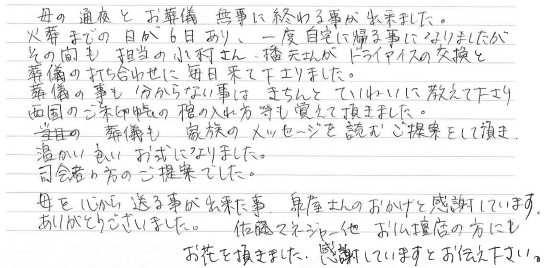 母の通夜とお葬儀 無事に終わる事が出来ました。
火葬までの日が6日あり、一度自宅に帰る事になりましたが
その間も 担当の小村さん、橘さんが ドライアイスの交換と
葬儀の打ち合わせに 毎日来て下さりました。
葬儀の事も 分からない事は きちんと ていねいに教えて下さり
西国のご朱印帳の棺の入れ方等も 覚えて頂きました。
当日の 葬儀も 家族の メッセージを読む ご提案をして頂き、
温かい良い お式になりました。
司会者の方のご提案でした。
母を心から 送る事が出来た事、泉屋さんのおかげと感謝しています。
ありがとうございました。 佐藤マネージャー他 お仏壇店の方にも
お花を頂きました。感謝していますとお伝え下さい。